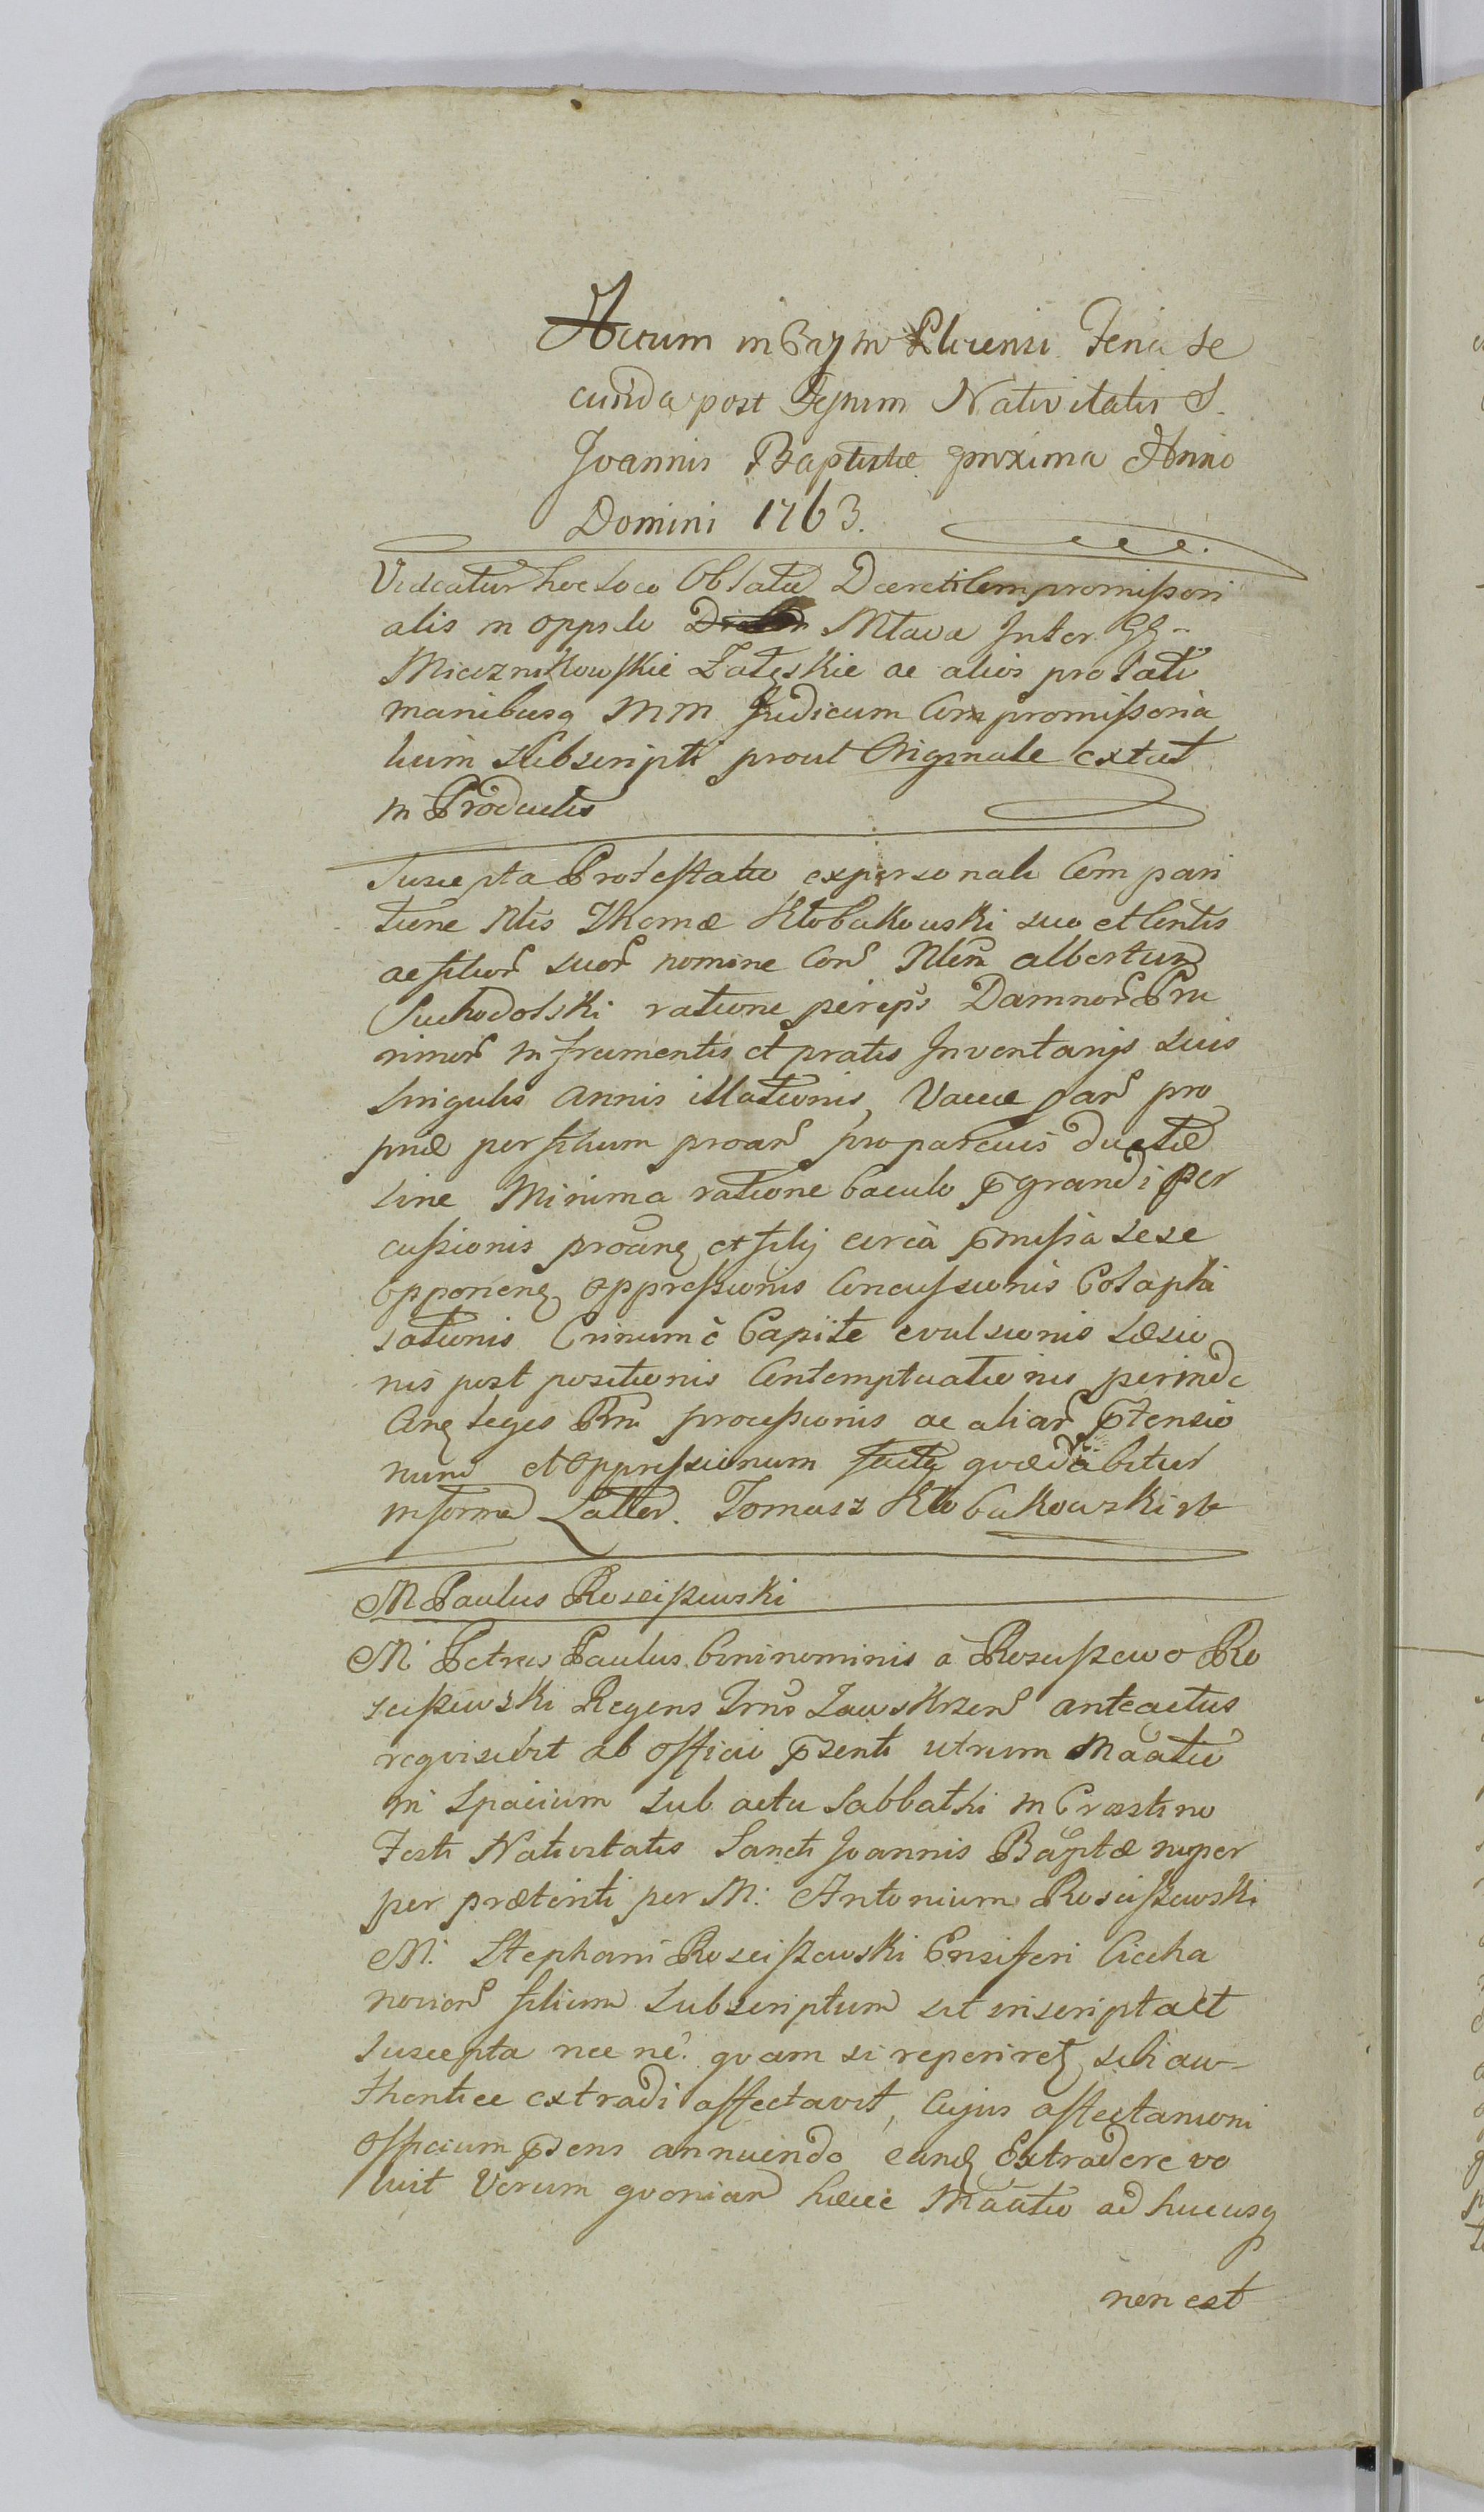 Actum in Castro Plocensi Feria se
cunda post Festum Nativitatis S.
Joannis Baptistæ proxima Anno
Domini 1763.
Videatur hoc loco Oblata Decreti Compromissori
alis in oppido Mlava Inter GG
Miecznikowskie Załęskie ac alios prolati
manibusq MM Judicum Compromissoria
lium subscripti prout Originale extat
in Productis
Suscepta Protestatio ex personali Compari
tione Nlis Thomæ Kłobukowski suo et Contis
ac filior suor nomine Con Nlem Albertum
Suchodolski ratione percipi Damnor Plu
rimor in frumentis et pratis Inventarijs suis
singulis annis illationis, Vaccæ par pro
priæ per filium proar pro parcuis ductæ
sine Minima ratione baculo p grandi per
cussionis proanq et filij circà pmissa sese
opponenq oppressionis Concussionis Colaphi
sationis Crinum è Capite evulsionis læsio
nis post positionis Contemptuationis perinde
Conq leges Rni processionis ac aliar ptensio
num et oppressionum factq quæ dabitur
in forma Latiori. Tomasz Kłobukowski
M Paulus Rosciszewski
M Petrus Paulus binominis a Rosciszewo Ro
sciszewski Regens Trris Zawskrzen anteactus
requisivit ab officio psenti utrum Maatio
in spacium sub actu Sabbathi in Crastino
Festi Nativitatis Sancti Joannis Baptæ nuper
per præteriti per M: Antonium Rosciszewski
M: Stephani Rosciszewski Ensiferi Ciecha
novien filium subscriptum sit inscripta et
suscepta nec ne. quam si reperiretq sibi au-
thentice extradi affectavit, Cujus affectationi
officium psens annuendo eandq Extradere vo
luit Verum quoniam hæcce Maatio ad hucusq
non est